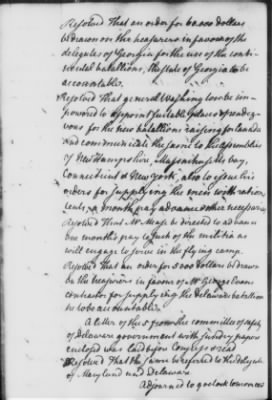 Resolved That an order for 60.000 dollars
be drawn on the treasurers in favour of the
delegates of Georgia for the use of the conti-
nental battalions, the state of Georgia to be
accountable.
Resolved That general Washington be im-
powered to appoint suitable places of rendez-
vous for the new battalions raising for Canada
and communicate the same to the assemblies
of New Hampshire, Massachusetts bay,
Connecticut & New York, also to issue his
orders for supplying the men with rations
tents, a month pay advance & other necessaries
Resolved That Mr. Mease be directed to advance
one month's pay to such of the militia as
will engage to serve in the flying camp.
Resolved That an order for 5000 dollars be drawn
on the treasurers in favour of Mr. Evan
contractor for supplying the Delaware battalion
to be accountable.
A letter of the 5 from the committee of safety
of Delaware government with sundry papers
enclosed was laid before Congress & read
Resolved That the same be referred to the delegates
of Maryland and Delaware
Adjourned to 9 o clock to morrow